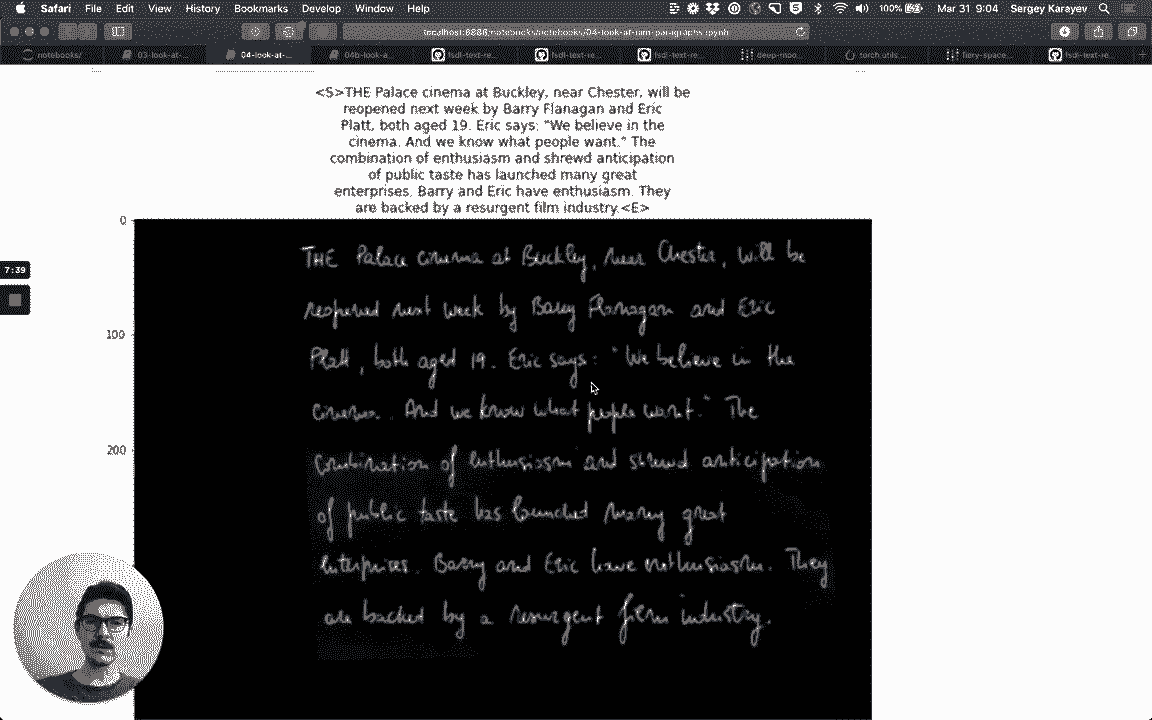 Safari File Edit View History Bookmarks Develop Window Help 100% Mar 31 9:04 Sergey Karayev
localhost:8888/notebooks/notebooks/04-look-at-iam-paragraphs.ipynb
notebooks/ 03-look-at-... 04-look-at-... 04b-look-a... fsdl-text-re... fsdl-text-re... fsdl-text-re... deep-moo... torch.utils.... fiery-space... fsdl-text-re...
<S>THE Palace cinema at Buckley, near Chester, will be
reopened next week by Barry Flanagan and Eric
Platt, both aged 19. Eric says: "We believe in the
cinema. And we know what people want." The
combination of enthusiasm and shrewd anticipation
of public taste has launched many great
enterprises. Barry and Eric have enthusiasm. They
are backed by a resurgent film industry.<E>
0
100
200
7:39
THE Palace cinema at Buckley, near Chester, will be
reopened next week by Barry Flanagan and Eric
Platt, both aged 19. Eric says: "We believe in the
cinema. And we know what people want." The
combination of enthusiasm and shrewd anticipation
of public taste has launched many great
enterprises. Barry and Eric have enthusiasm. They
are backed by a resurgent film industry.